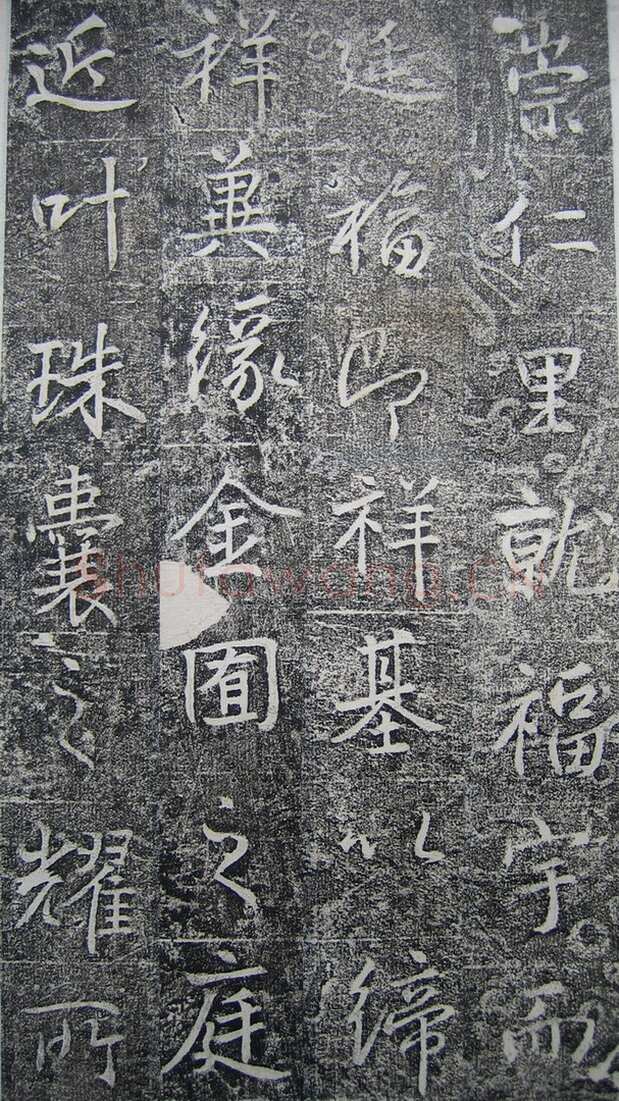 崇仁里就福宇而
延福即祥基以締
祥冀緣金囿之庭
近叶珠囊之耀所
Shufawang.CN